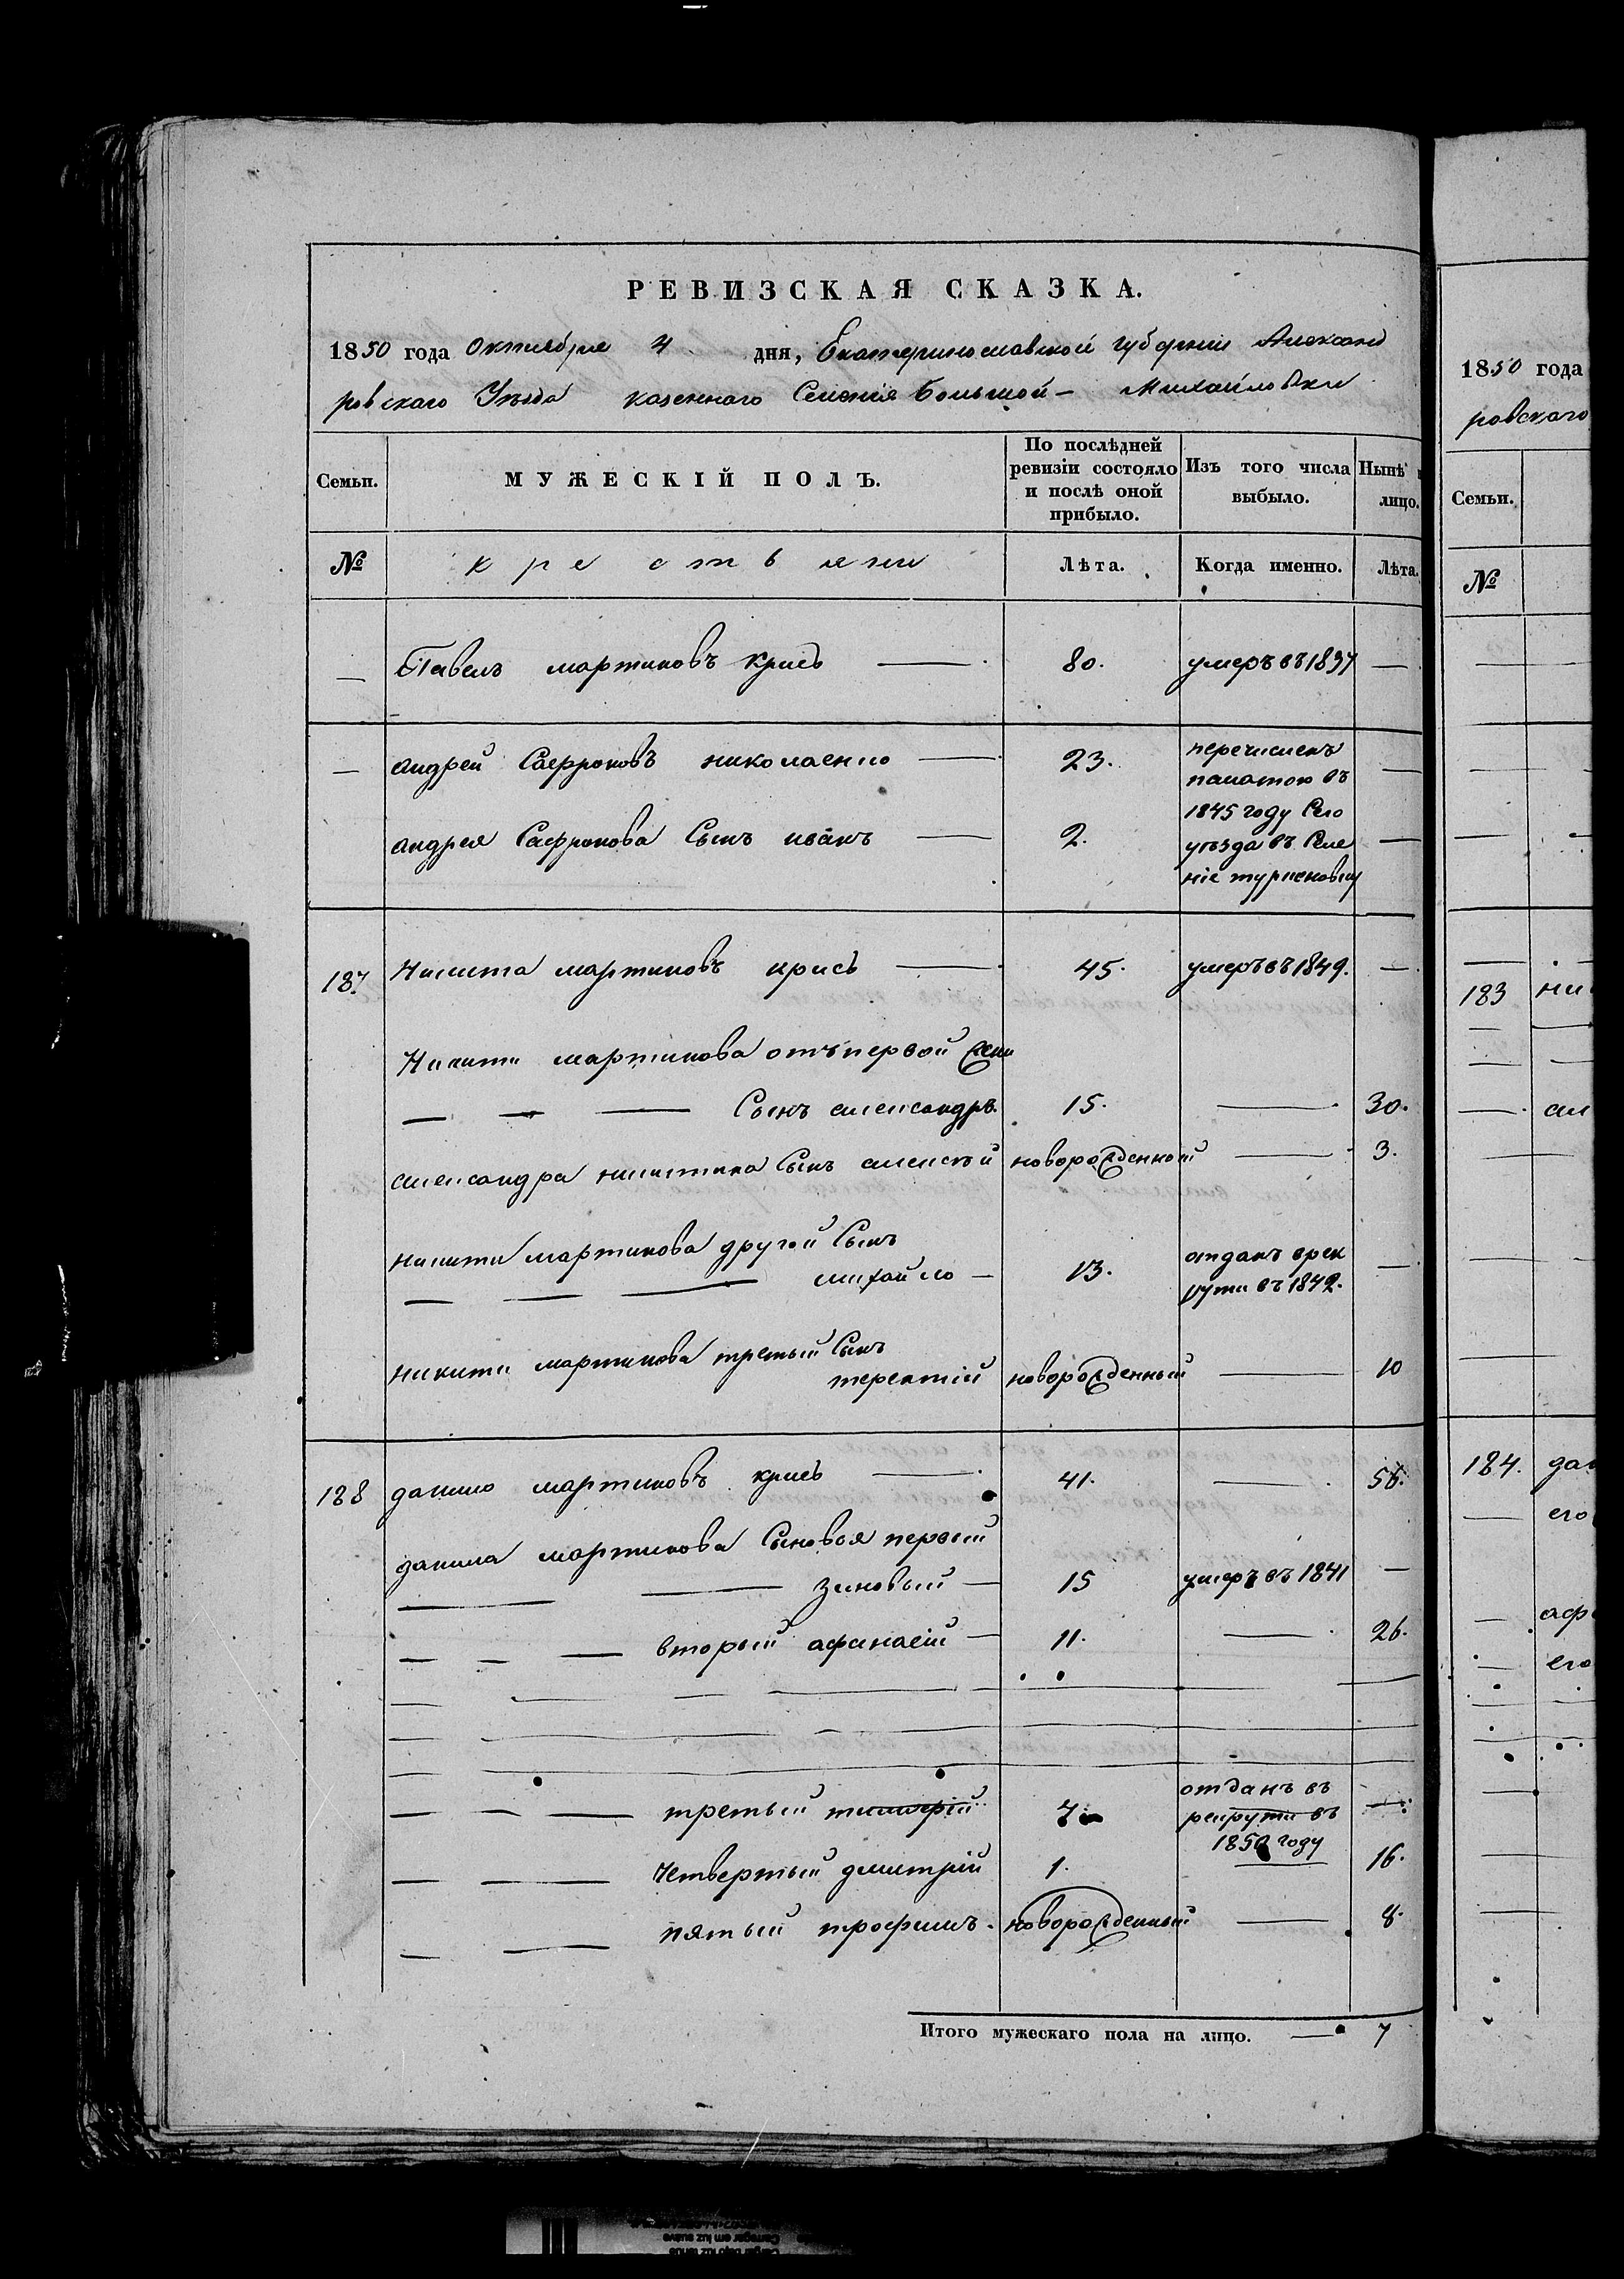 РЕВИЗСКАЯ СКАЗКА.
1850 года Октября 4 дня, Екатеринославской губернии Александ
ровскаго Уезда казеннаго Селенія Большой - Михайловки
Семьи.
МУЖЕСКІЙ ПОЛЪ.
По послѣдней ревизіи состояло и послѣ оной прибыло.
Изъ того числа выбыло.
Нынѣ
лицо.
№
крестьяни
Лѣта.
Когда именно.
Лѣта.
— Павелъ мартиновъ крисъ — 80. умеръ въ 1837 —
— андрей Сафроновъ николаенко — 23. перечисленъ
палатою въ —
1845 году Сего
андрея Сафронова Сынъ иванъ — 2. уѣзда въ Селе —
ніе
187 Никита мартиновъ крисъ — 45. умеръ въ 1849. —
Никити мартинова отъ первой жени
— — — Сынъ александръ. 15. — 30.
александра никитина Сынъ алексѣй новорожденной — 3.
никити мартинова другой Сынъ
— — — михайло — 13. отданъ врек
рути въ 1842. —
никити мартинова третьий Сынъ
терентий новорожденный — 10
188 данило мартиновъ крисъ — 41. — 56.
данила мартинова Сыновья первый
— — зиновый — 15 умеръ въ 1841 —
— — — вторый афанасій — 11. — 26.
— — — третьий тимофѣй 7 отданъ въ
рекрути въ —
1850 году
— — четвертый дмитрій 1. — 16.
— — пятый трофимъ. новорожденный — 8.
Итого мужескаго пола на лицо. — 7
1850 года
ровскаго
Семьи.
№
183
184.
его
его